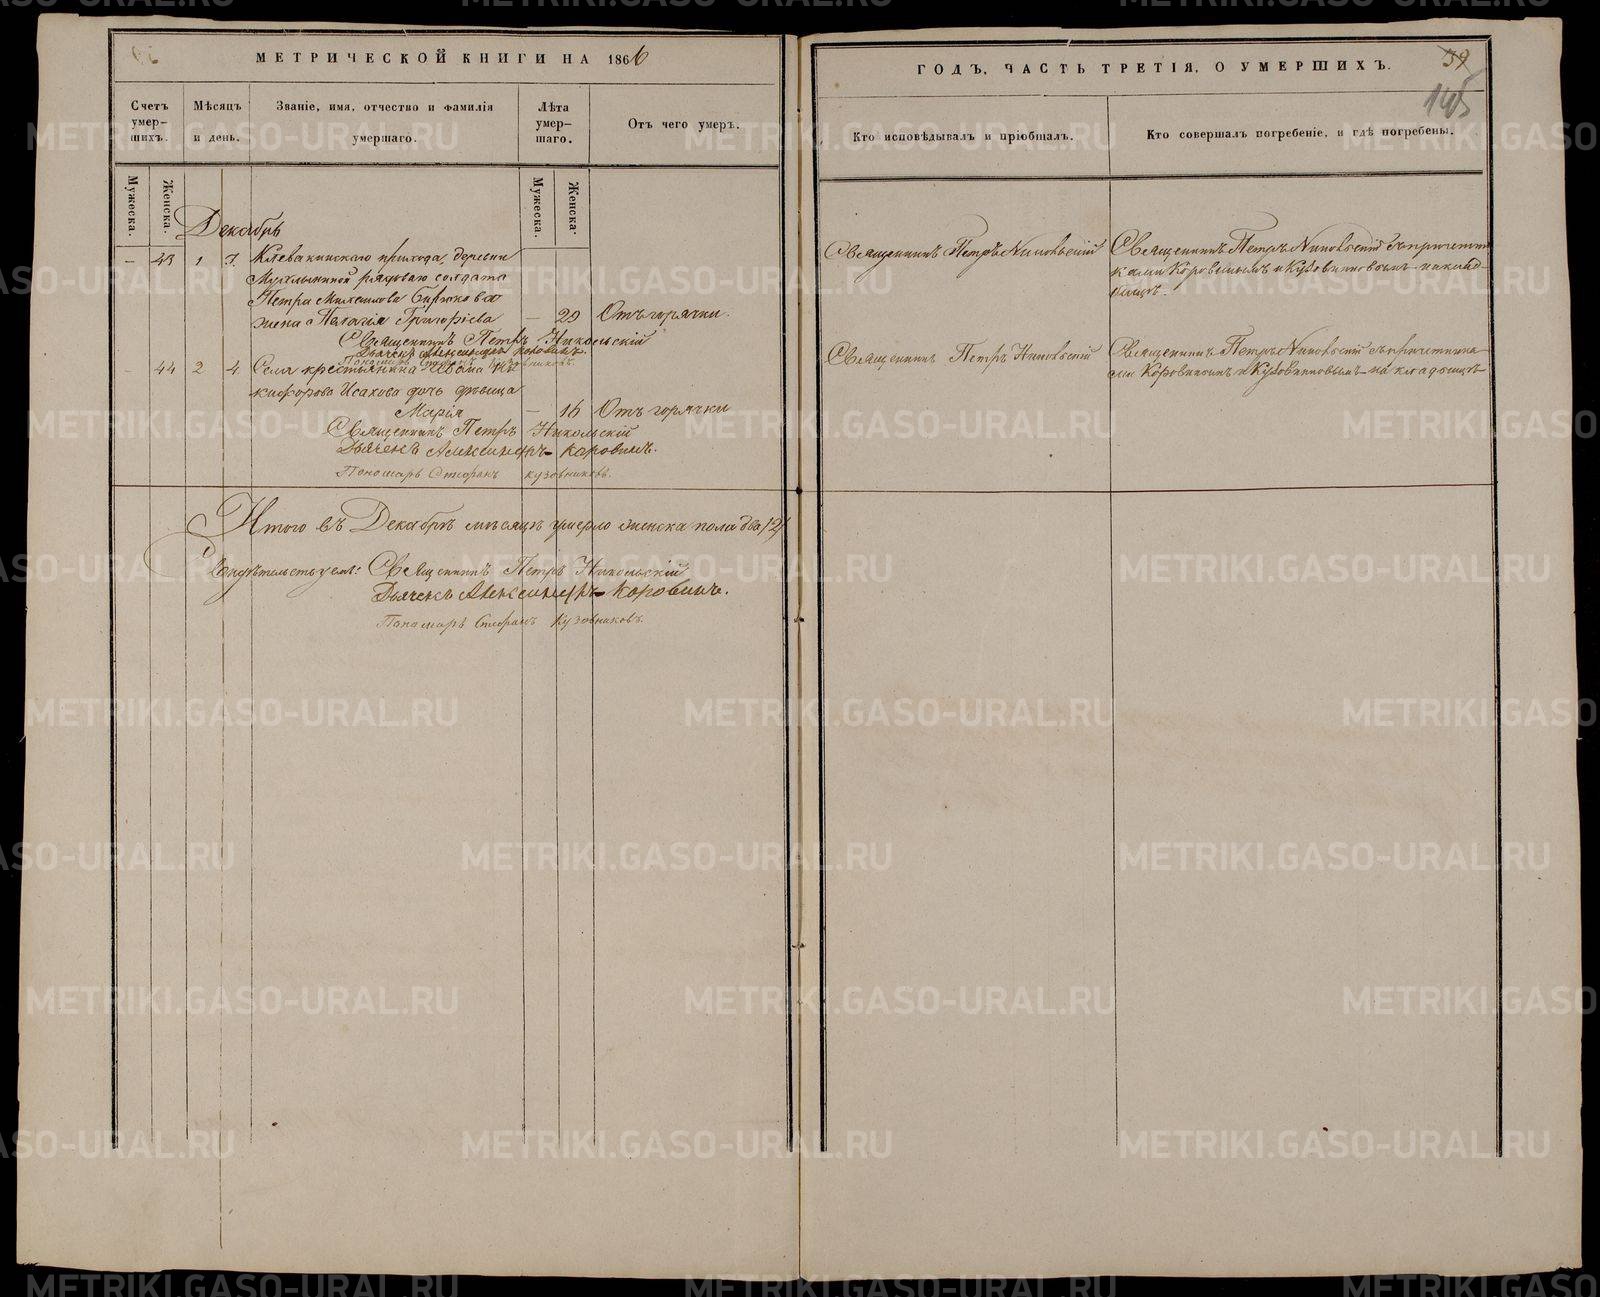 МЕТРИЧЕСКОЙ КНИГИ НА 1866
Счетъ умер-шихъ.
Мѣсяцъ и день.
Званіе, имя, отчество и фамилія умершаго.
Лѣта умер-шаго.
Отъ чего умеръ.
Мужеска.
Женска.
Мужеска.
Женска.
Декабрь
– 43 1 7. Клевакинскаго прихода, деревни
рядоваго солдата
Петра Михаилова Бирюкова
жена Пелагія Григоріева – 29 Отъ горячки.
Священникъ Петръ Никольскій
Дьячекъ Александръ Коровинъ.
Пономарь Стефанъ Кузовниковъ.
– 44 2 4. Села крестьянина Ивана Ни-
кифорова Исакова дочь дѣвица
Марія – 16 Отъ горячки
Священникъ Петръ Никольскій
Дьячекъ Александръ Коровинъ.
Пономарь Стефанъ Кузовниковъ.
Итого въ Декабрѣ мѣсяцѣ умерло женска пола два /2/
Свидѣтельствуемъ: Священникъ Петръ Никольскій
Дьячекъ Александръ Коровинъ.
Пономарь Стефанъ Кузовниковъ.
ГОДЪ, ЧАСТЬ ТРЕТІЯ, О УМЕРШИХЪ.
39
145
Кто исповѣдывалъ и пріобщалъ.
Кто совершалъ погребеніе, и гдѣ погребены.
Священникъ Петръ Никольскій
Священникъ Петръ Никольскій съ причетни-
ками Коровинымъ и Кузовниковымъ на клад-
бищѣ.
Священникъ Петръ Никольскій
Священникъ Петръ Никольскій съ причетника-
ми Коровинымъ и Кузовниковымъ на кладбищѣ
METRIKI.GASO-URAL.RU